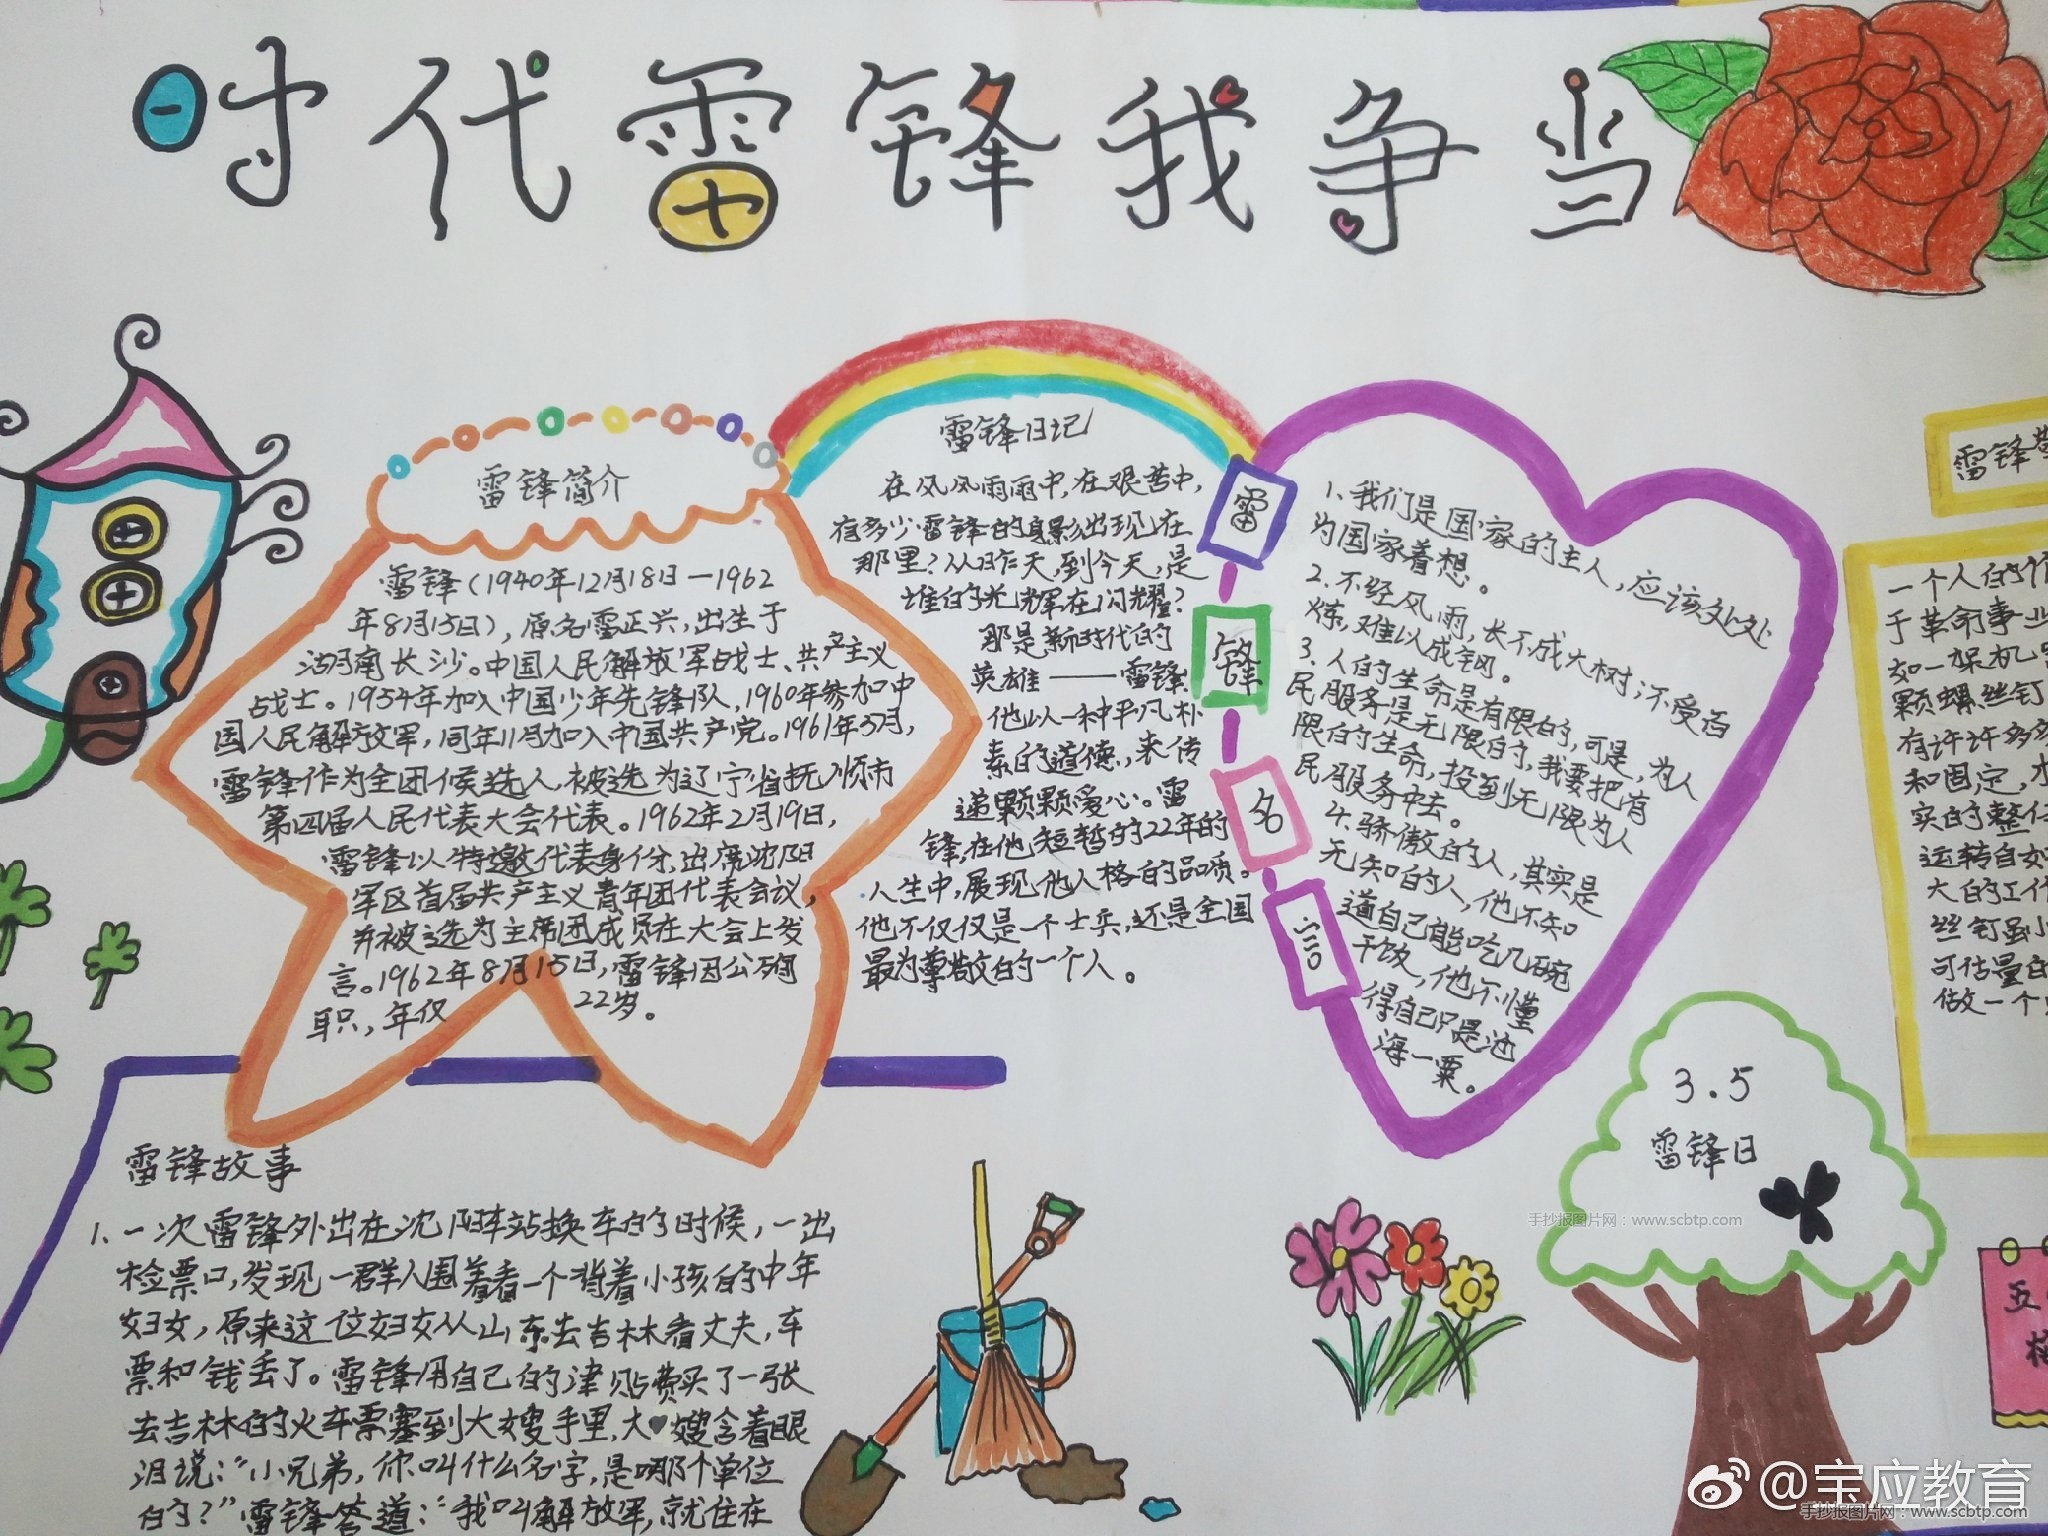 时代雷锋我争当
雷锋简介
雷锋(1940年12月18日—1962
年8月15日)，原名雷正兴，出生于
湖南长沙。中国人民解放军战士、共产主义
战士。1954年加入中国少年先锋队，1960年参加中
国人民解放军，同年11月加入中国共产党。1961年5月，
雷锋作为全团候选人，被选为辽宁省抚顺市
第四届人民代表大会代表。1962年2月19日，
雷锋以特邀代表身份，出席沈阳
军区首届共产主义青年团代表会议，
并被选为主席团成员在大会上发
言。1962年8月15日，雷锋因公殉
职，年仅22岁。
雷锋日记
在风风雨雨中，在艰苦中，
有多少雷锋的身影出现在
那里？从昨天，到今天，是
谁的光辉在闪耀？
那是新时代的
英雄——雷锋！
他以一种平凡朴
素的道德，来传
递颗颗爱心。雷
锋，在他短暂的22年的
人生中，展现他人格的品质。
他不仅仅是一个士兵，还是全国
最为尊敬的一个人。
雷
锋
名
言
1、我们是国家的主人，应该处处
为国家着想。
2、不经风雨，长不成大树；不受百
炼，难以成钢。
3、人的生命是有限的，可是，为人
民服务是无限的，我要把有
限的生命，投到无限为人
民服务中去。
4、骄傲的人，其实是
无知的人，他不知
道自己能吃几碗
干饭，他不懂
得自己只是沧
海一粟。
一个人的作
于革命事业
如一架机器
颗螺丝钉
有许许多多
和固定，才
实的整体
运转自如
大的工作
丝钉虽小
可估量的
做一个
3.5
雷锋日
雷锋故事
1、一次雷锋外出在沈阳车站换车的时候，一出
检票口，发现一群人围着看一个背着小孩的中年
妇女，原来这位妇女从山东去吉林看丈夫，车
票和钱丢了。雷锋用自己的津贴费买了一张
去吉林的火车票塞到大嫂手里，大嫂含着眼
泪说：“小兄弟，你叫什么名字，是哪个单位
的？”雷锋答道：“我叫解放军，就住在
手抄报图片网：www.scbtp.com
@宝应教育
手抄报图片网：www.scbtp.com